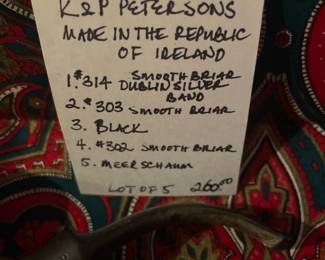 K&P PETERSONS
MADE IN THE REPUBLIC
OF IRELAND
1. #314 SMOOTH BRIAR
DUBLIN SILVER
BAND
2. #303 SMOOTH BRIAR
3. BLACK
4. #302 SMOOTH BRIAR
5. MEERSCHAUM
LOT OF 5 260.00